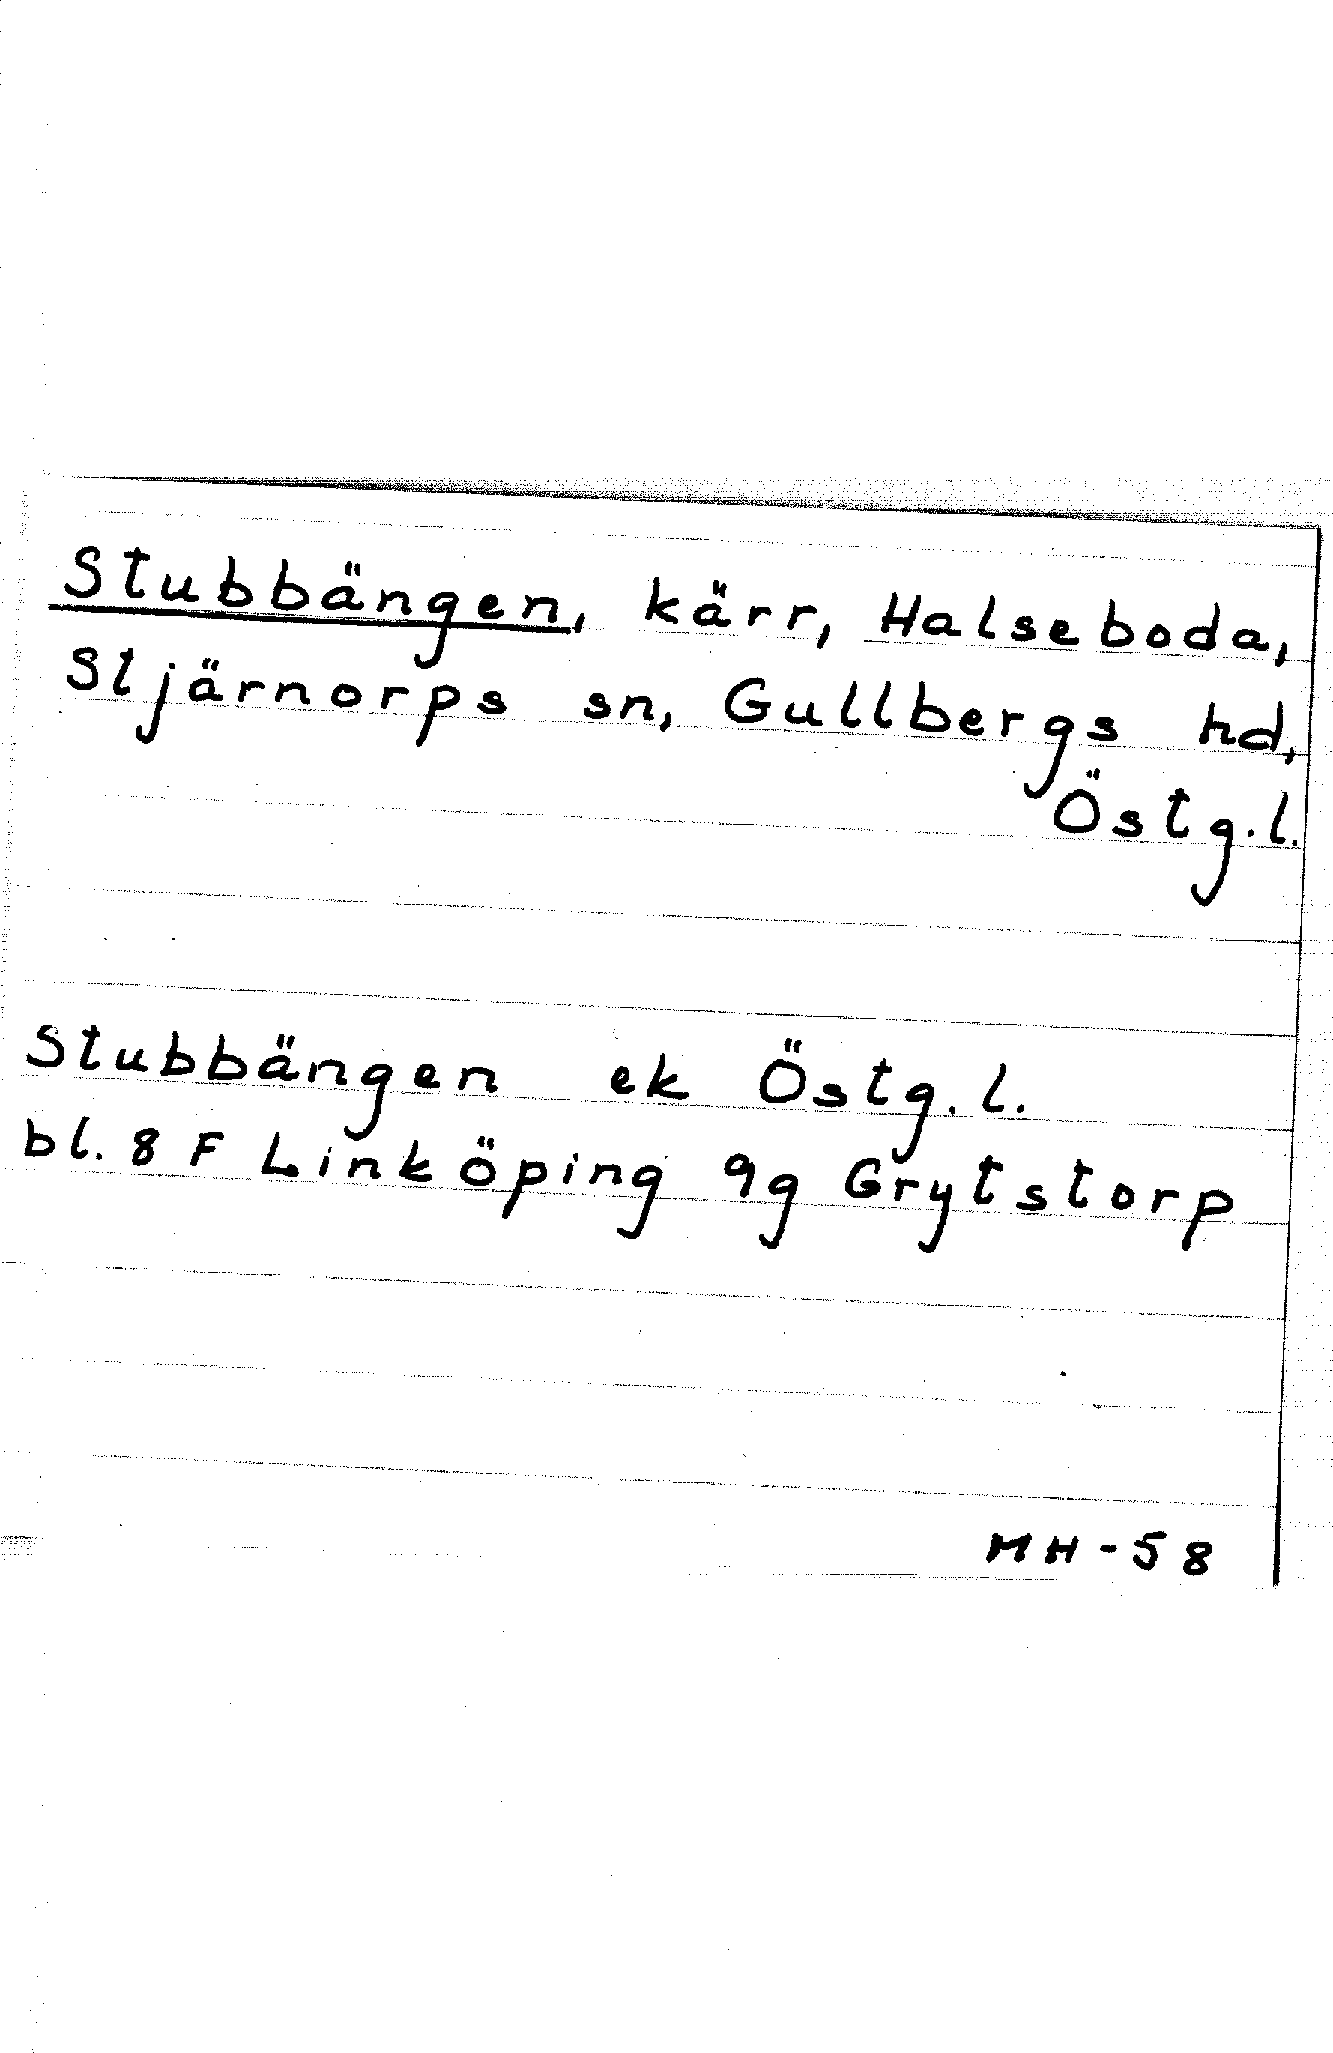 Stubbängen, kärr, Halseboda,
Stjärnorps sn, Gullbergs hd,
Östg.l.
Stubbängen ek Östg.l.
bl. 8 F Linköping 9g Grytstorp
MH-58